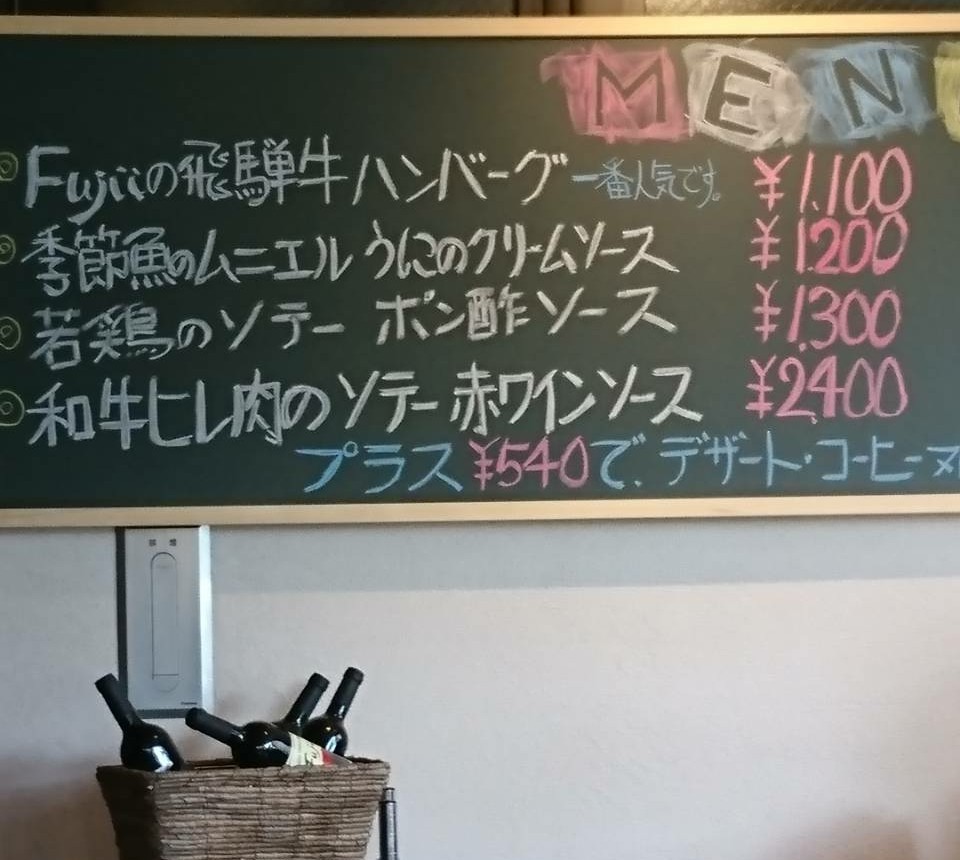 MEN
◎Fujiiの飛騨牛ハンバーグ 一番人気です。 ¥1.100
◎季節魚のムニエル うにのクリームソース ¥1.200
◎若鶏のソテー ポン酢ソース ¥1.300
◎和牛ヒレ肉のソテー 赤ワインソース ¥2.400
プラス¥540で、デザート・コーヒー